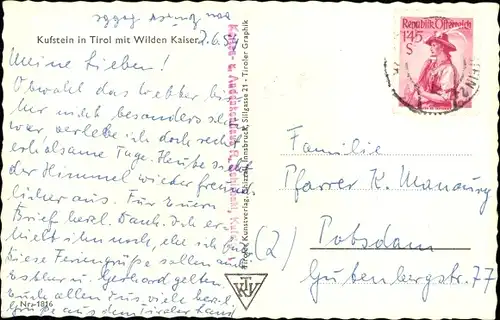 Kufstein in Tirol mit Wilden Kaiser
Meine Lieben!
Obwohl das Wetter bis
hier nicht besonders schön
war, verlebe ich doch recht
erholsame Tage. Heute sieht
der Himmel wieder freund-
licher aus. Für Euern
Brief herzl. Dank. Ich er-
hielt ihn noch, ehe ich
Diese Feriengrüße sollen
Esther u. Gerhard gelten.
Euch allen viele herzl.
Grüße aus dem Tiroler Land
Nr. 1816
Kunstverlag, Innsbruck, Sillgasse 21 - Tiroler Graphik
Republik Österreich
1'45
S
Familie
Pfarrer K.
(2) Potsdam
Gutenbergstr. 77